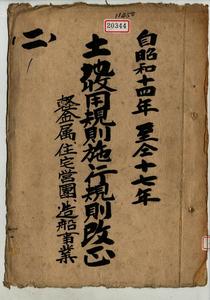 11250
20344
自昭和十四年 至仝十七年
土地使用規則施行規則改正
軽金属 住宅営團 造船事業
(二)